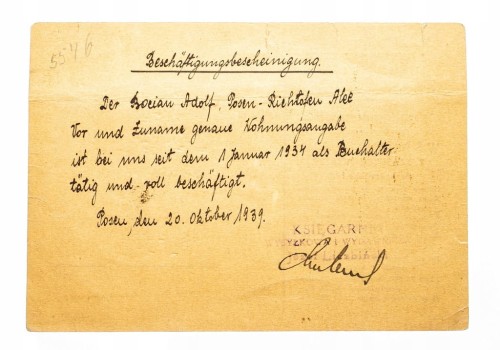 5546
Beschäftigungsbescheinigung.
Der Bocian Adolf, Posen-Richtofen Alee
Vor und Zuname genaue Wohnungsangabe
ist bei uns seit dem 1 Januar 1934 als Buchalter
tätig und voll beschäftigt.
Posen, den 20. Oktober 1939.
KSIĘGARNI